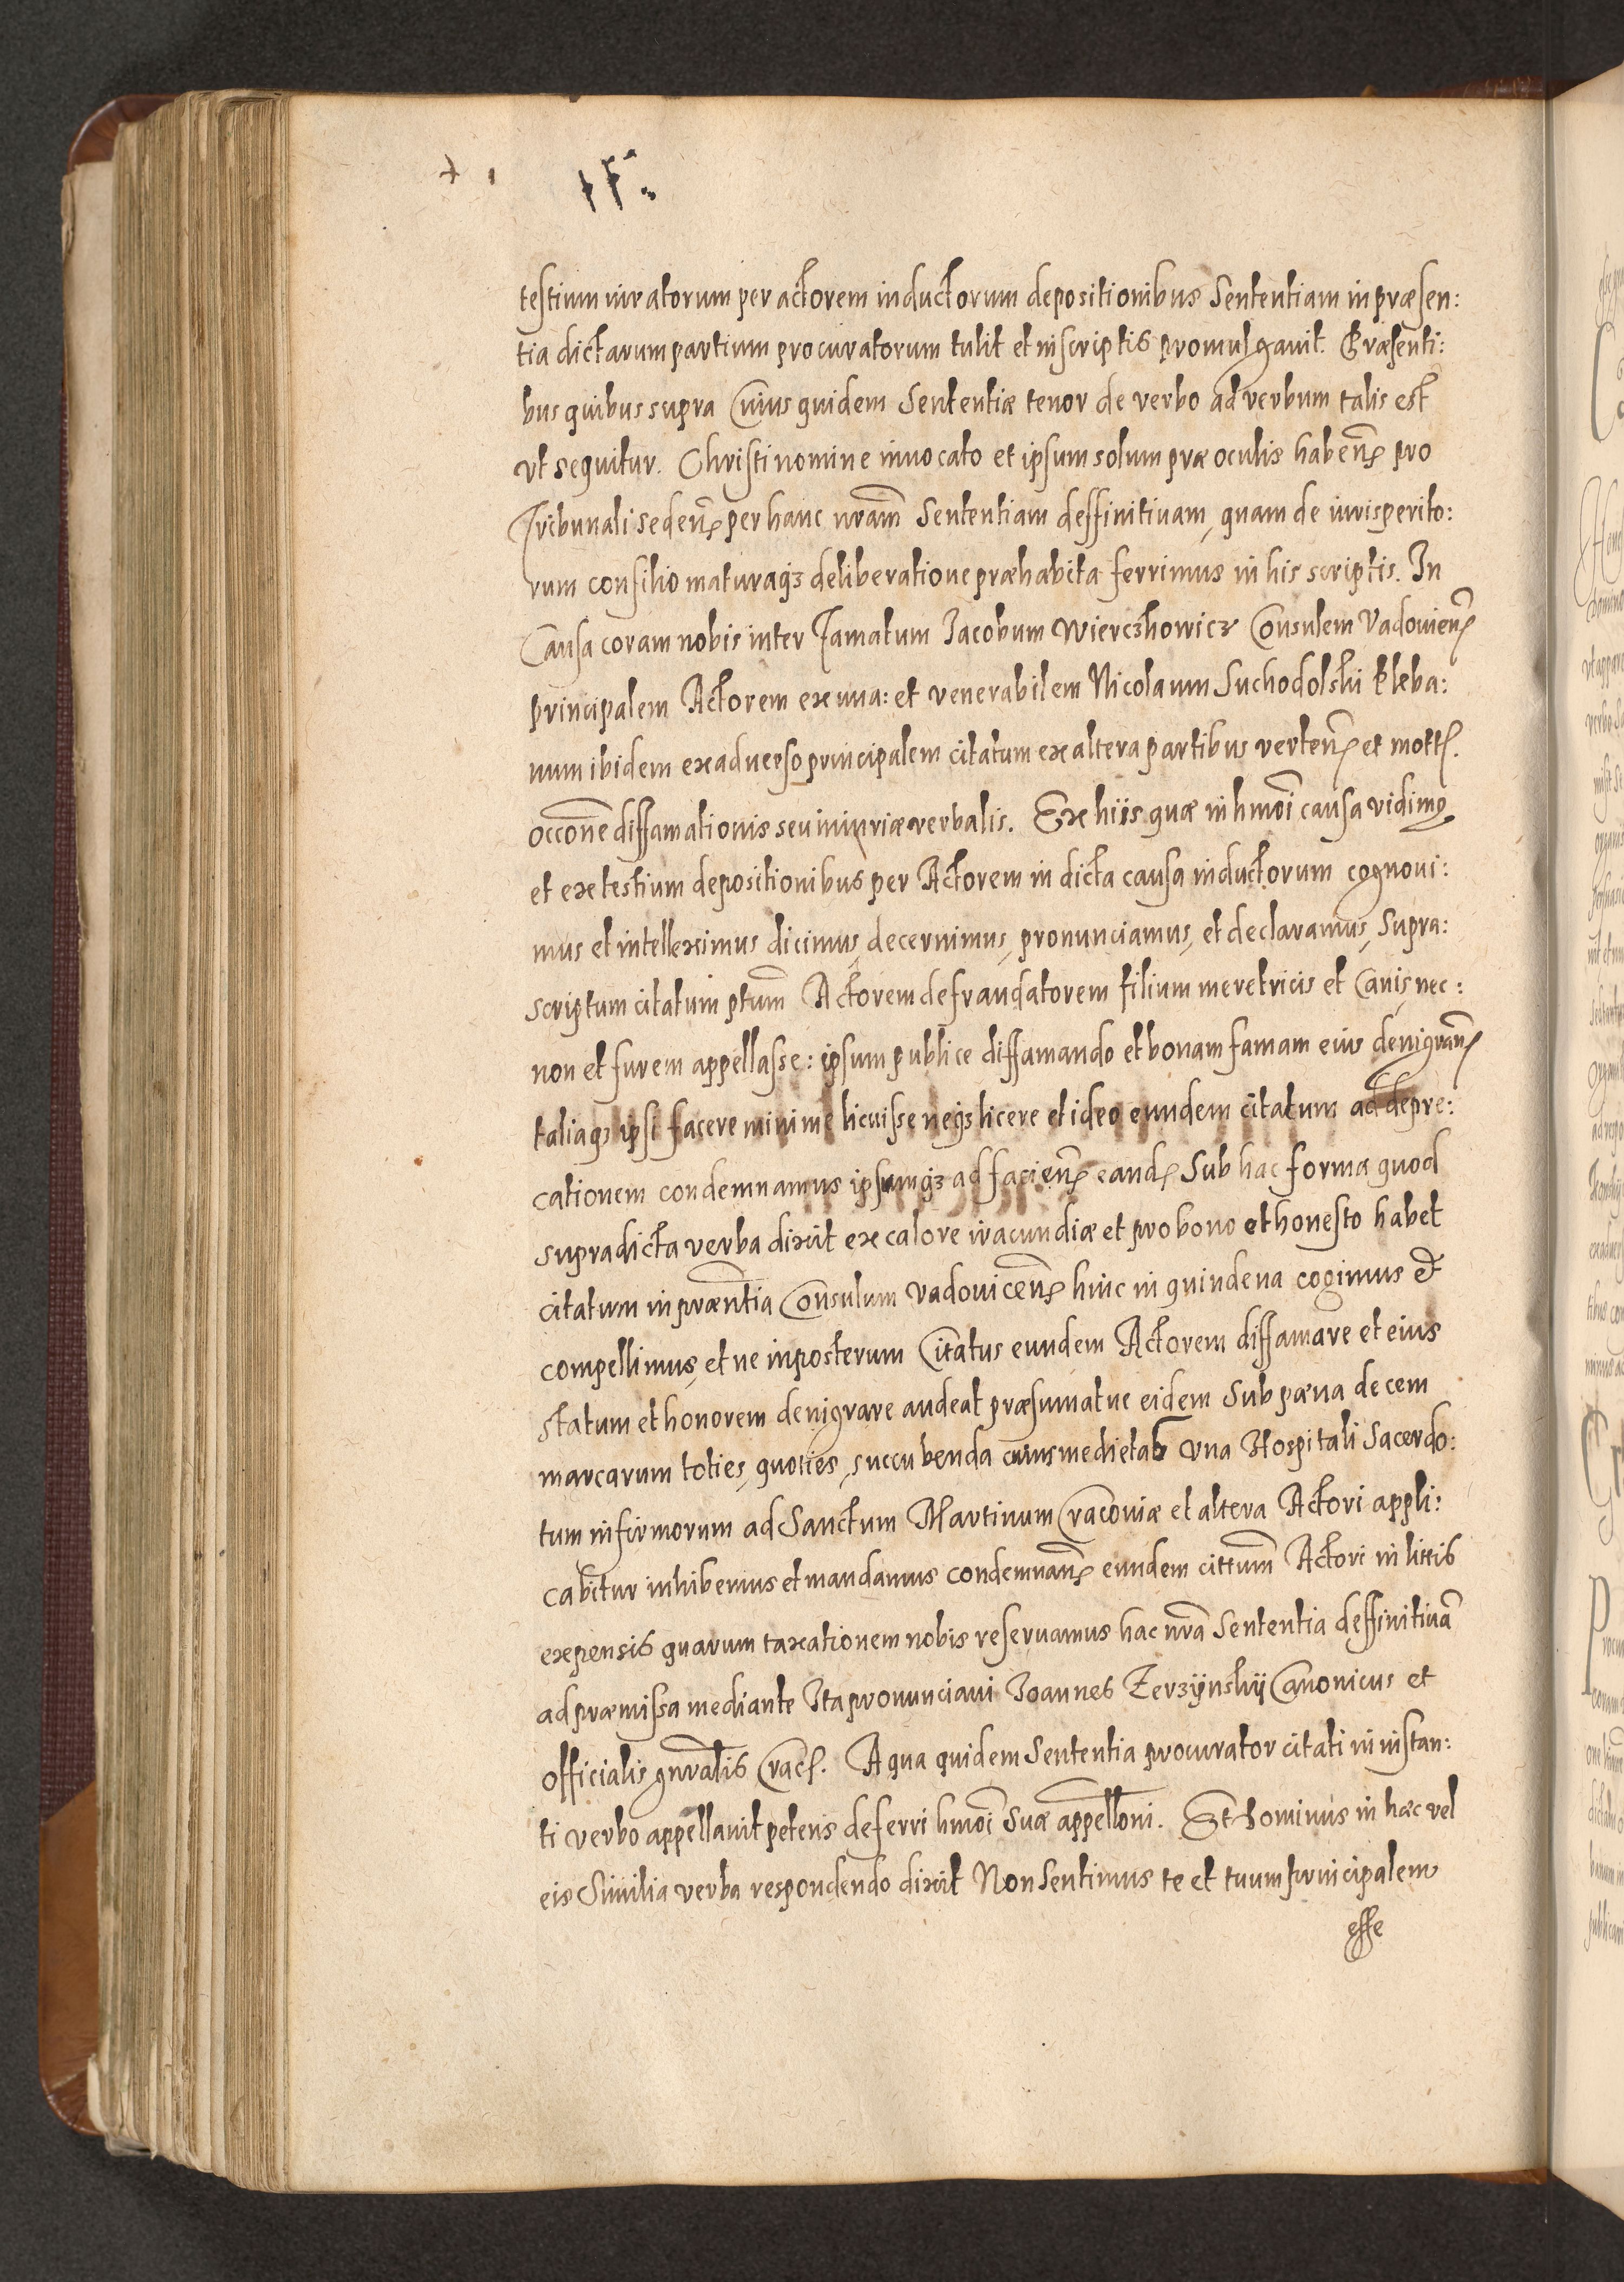 testium iuratorum per actorem inductorum depositionibus Sententiam in præsen:
tia dictarum partium procuratorum tulit et in scriptis promulgauit. Præsenti:
bus quibus supra Cuius quidem Sententiæ tenor de verbo ad verbum talis est
vt sequitur. Christi nomine inuocato et ipsum solum præ oculis habeñ pro
Tribunali sedeñ per hanc nram̃ Sententiam deffinitiuam, quam de iurisperito:
rum consilio maturaqȝ deliberatione præhabita ferrimus in his scriptis. In
Causa coram nobis inter Famatum Jacobum Wierczhowicz Consulem Vadouieñ
principalem Actorem ex vna: et venerabilem Nicolaum Suchodolski Pleba:
num ibidem ex aduerso principalem citatum ex altera partibus verteñ et mott.
occōne diffamationis seu iniuriæ verbalis. Ex hiis quæ in hmōi causa vidimꝰ
et ex testium depositionibus per Actorem in dicta causa inductorum cognoui:
mus et intelleximus dicimus, decernimus, pronunciamus, et declaramus, Supra:
scriptum citatum ptum̃ Actorem defraudatorem filium meretricis et Canis, nec:
non et furem appellasse: ipsum publice diffamando et bonam famam eius denigrañ
taliaqȝ ipsi facere minime licuisse neqȝ licere et ideo eundem citatum ad depre:
cationem condemnamus ipsumqȝ ad facieñ eand Sub hac forma quod
supradicta verba dixit ex calore iracundiæ et pro bono et honesto habet
citatum in præntia Consulum Vadouiceñ hinc in quindena cogimus et
compellimus, et ne inposterum Citatus eundem Actorem diffamare et eius
statum et honorem denigrare audeat præsumatue eidem Sub pæna decem
marcarum toties, quoties, succubenda cuius medietas vna Hospitali Sacerdo:
tum infirmorum ad Sanctum Martinum Cracouiæ et altera Actori appli:
cabitur inhibemus et mandamus condemnañ eundem cittum̃ Actori in littis
expensis quarum taxationem nobis reseruamus hac nrã Sententia deffinitiuã
ad præmissa mediante Ita pronunciaui Joannes Zerzÿnskÿ Canonicus et
officialis gnralis Crac. A qua quidem Sententia procurator citati in instan:
ti verbo appellauit petens deferri hmōi Suæ appelloni. Et Dominus in hæc vel
eis Similia verba respondendo dixit Non Sentimus te et tuum principalem
esse